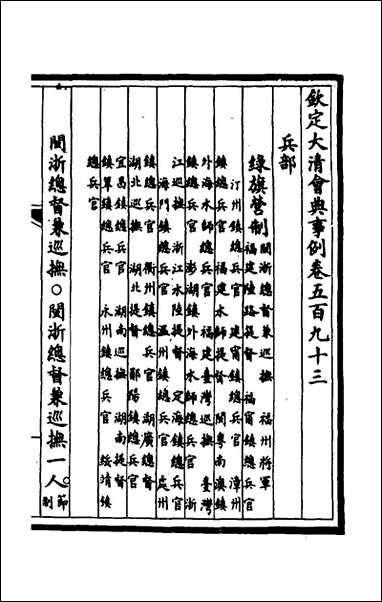 欽定大清會典事例卷五百九十三
兵部
綠旗營制 閩浙總督兼巡撫 福州將軍
福建陸路提督 福甯鎮總兵官
汀州鎮總兵官 建甯鎮總兵官 漳州
鎮總兵官 福建水師提督 閩粵南澳鎮
外海水師總兵官 福建臺灣巡撫 臺灣
鎮總兵官 澎湖鎮外海水師總兵官 浙
江巡撫 浙江水陸提督 定海鎮總兵官
海門鎮總兵官 溫州鎮總兵官 處州
鎮總兵官 衢州鎮總兵官 湖廣總督
湖北巡撫 湖北提督 鄖陽鎮總兵官
宜昌鎮總兵官 湖南巡撫 湖南提督
鎮筸鎮總兵官 永州鎮總兵官 綏靖鎮
總兵官
閩浙總督兼巡撫○閩浙總督兼巡撫一人。節制